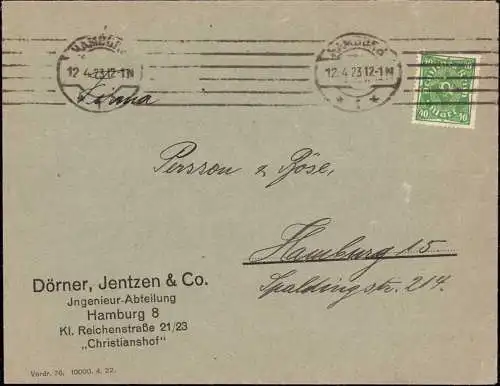 HAMBURG
12.4.23.12-1N
HAMBURG
12.4.23.12-1N
* 1 *
40 40
Firma
Persson & Böse,
Hamburg 15
Spaldingstr. 214.
Dörner, Jentzen & Co.
Jngenieur-Abteilung
Hamburg 8
Kl. Reichenstraße 21/23
„Christianshof"
Vordr. 76. 10000. 4. 22.